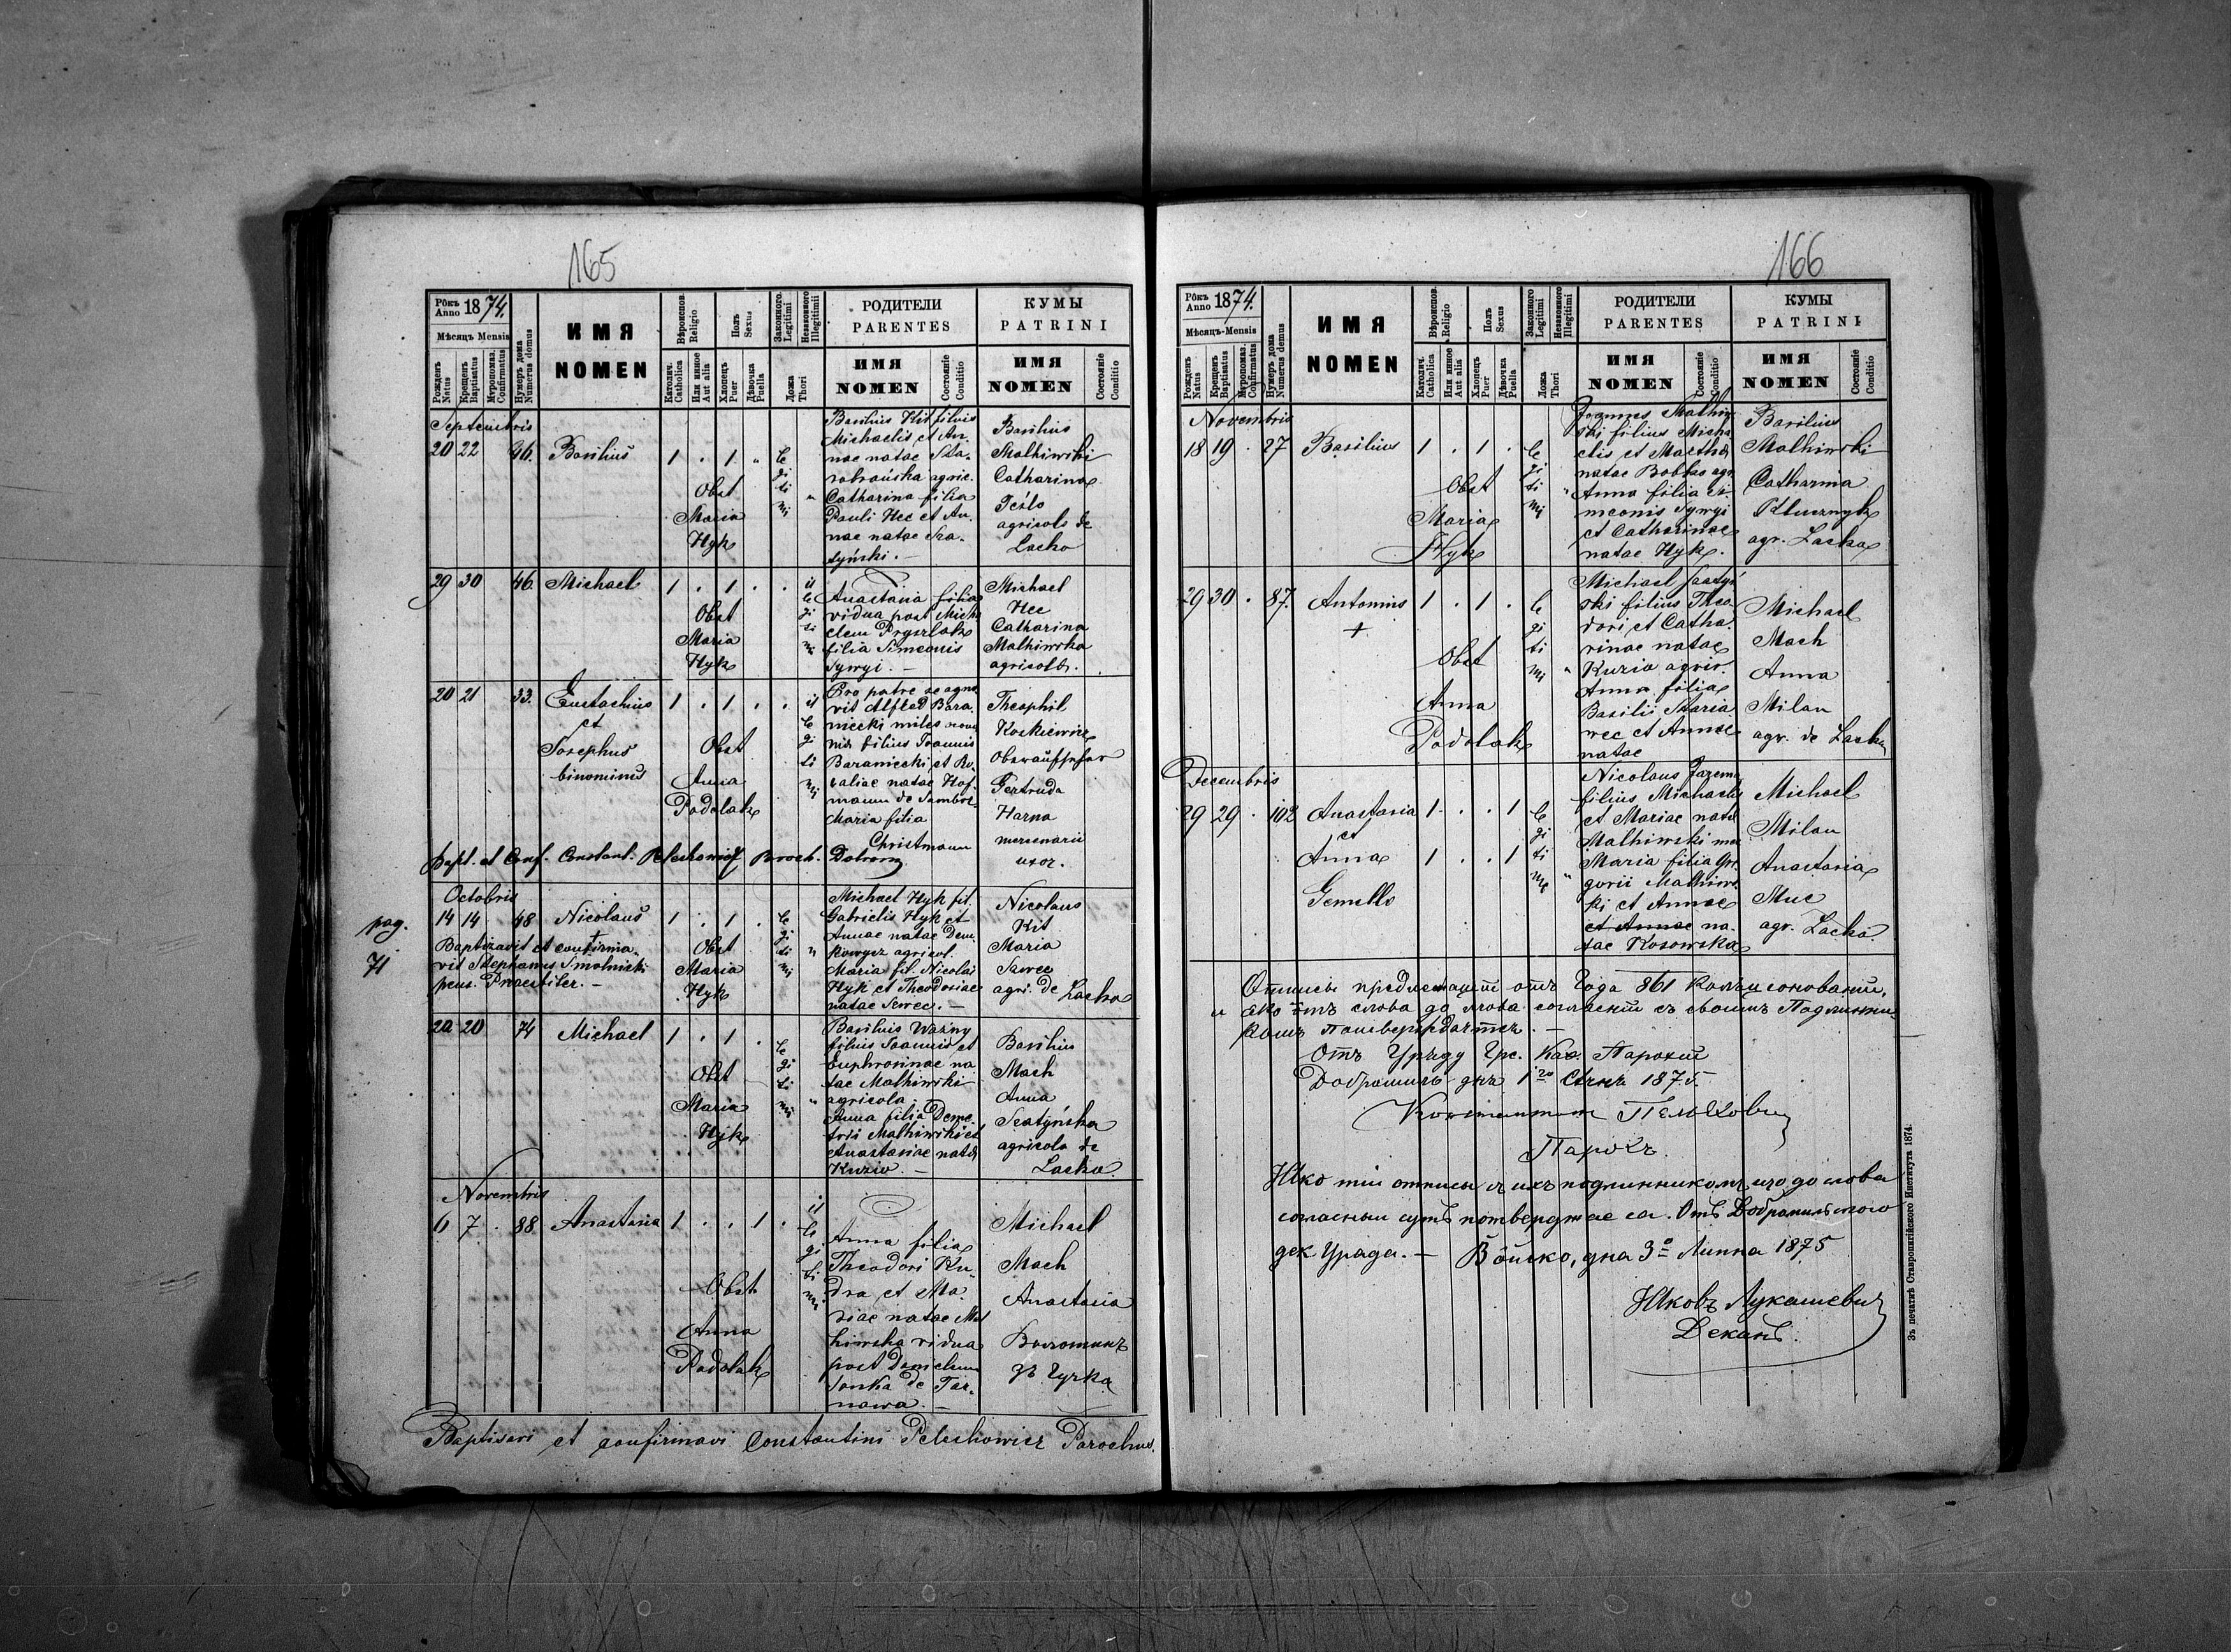 165
Рôкъ Anno 1874.
Мѣсяцъ Mensis
Рожденъ Natus
Крещенъ Baptisatus
Мѵропомаз. Confirmatus
Нумеръ дома Numerus domus
ИМЯ
NOMEN
Вѣроиспов. Religio
Католич. Catholica
Или иное Aut alia
Полъ Sexus
Хлопецъ Puer
Дѣвочка Puella
Законного Legitimi
Незаконного Illegitimi
Ложа Thori
РОДИТЕЛИ
PARENTES
ИМЯ
NOMEN
Состояніе Conditio
КУМЫ
PATRINI
ИМЯ
NOMEN
Состояніе Conditio
Septembris
20 22 96. Basilius 1 . 1 "
legitimi
Obst
Maria
Hyk
Basilius Kit filius
Michaelis et An-
nae natae
agric.
Catharina filia
Pauli Hec et An-
nae natae Sza-
tyński. -
Basilius
Malhiwski
Catharina
agricola de
Lacko
29 30 46. Michael 1 . 1 . .
illegitimi
Obst
Maria
Hyk
Anastasia filia
vidua post Mich
aelem
filia Simeonis
Sywyi. -
Michael
Hec
Catharina
Malhiwska
agricola.
20 21 33. Eustachius 1 . 1 . .
et
Josephus
binominus
illegitimi
Obst
Anna
Podolak
Pro patre se agno
vit Alfred Bara-
niecki miles
filius Joannis
Baraniecki et Ro-
saliae natae Hof-
mann de Sambor
Maria filia
Christmann
Theophil
Koskiewicz
Oberaufseher
Gertruda
Harna
mercenarii
uxor.
Bapt. et Conf. Constant. Peleshowicz Paroch. Dobrom.
Octobris
pag.
71
14 14 48 Nicolaus 1 . 1 .
legitimi
Baptizavit et confirma-
vit Stephanus Smolnicki
pens. Praesbiter. -
Obst
Maria
Hyk
Michael Hyk fil.
Gabrielis Hyk et
Annae natae Dem-
kowycz agricol.
Maria fil. Nicolai
Hyk et Theodosiae
natae Sewec. -
Nicolaus
Kit
Maria
Sawec
agr. de Lacko
20 20 74 Michael 1 . 1 .
legitimi
Obst
Maria
Hyk
Basilius Wazny
filius Joannis et
Euphrosinae na-
tae Malhiwski
agricola -
Anna filia Deme-
trii Malhiwski et
Anastasiae natae
Kuzio. -
Basilius
Mach
Anna
Szatyńska
agricola de
Lacko
Novembris
6 7 . 88 Anastasia 1 . . 1 .
illegitimi
Obst.
Anna
Podolak
Anna filia
Theodori Ku-
dra et Ma-
riae natae Mal
hiwska vidua
post Danielem
Sonka de Tar-
nawa. -
Michael
Mach
Anastasia
Baptisavi et confirmavi Constantini Peleshowicz Parochus.
166
Рôкъ Anno 1874.
Мѣсяцъ-Mensis
Рожденъ Natus
Крещенъ Baptisatus
Мѵропомаз. Confirmatus
Нумеръ дома Numerus domus
ИМЯ
NOMEN
Вѣроиспов. Religio
Католич. Catholica
Или иное Aut alia
Полъ Sexus
Хлопецъ Puer
Дѣвочка Puella
Законного Legitimi
Незаконного Illegitimi
Ложа Thori
РОДИТЕЛИ
PARENTES
ИМЯ
NOMEN
Состояніе Conditio
КУМЫ
PATRINI
ИМЯ
NOMEN
Состояніе Conditio
Novembris
18 19 . 27 Basilius 1 . 1 .
legitimi
Obst
Maria
Hyk
Joannes Malhiw
ski filius Micha
elis et Martha
natae Bobkas agr.
Anna filia Si-
meonis Sywyi
et Catharinae
natae Hyk.
Basilius
Malhiwski
Catharina
Klucznyk
agr. Lacko
29 30 . 87. Antonius 1 . 1 .
+
legitimi
Obst
Anna
Podolak
Michael Szatyń
ski filius Theo-
dori et Catha-
rinae natae
Kuzio agric.
Anna filia
Basilii
et Annae
natae
Michael
Mach
Anna
Milan
agr. de Lacko
Decembris
29 29 . 102 Anastasia 1 . . 1
et
Anna 1 . . 1
Gemelle
legitime
Nicolaus Jarema
filius Michaelis
et Mariae natae
Malhiwski
Maria filia Gre-
gorii Malhiws-
ki et Annae
et Annae na-
tae Kosowska
Michael
Milan
Anastasia
Muc
agr. Lacko.
Отписы предлежащіи отъ года 861
яко отъ слова до слова согласніи съ своимъ Подлинни-
комъ потверждается. -
Отъ Уряду Гре. Каѳ. Парохіи
Добромиль дня 1го Січня 1875.
Константинъ Пелеховичъ
Парохъ.
Яко тіи отписы съ ихъ подлинникомъ що до слова
согласными суть потверджае ся. Отъ Добромильского
дек Уряда. - Войско, дня 3о Липня 1875
Яковъ Лукашевич
Деканъ.
Зъ печатнѣ Ставропигійского Института 1874.